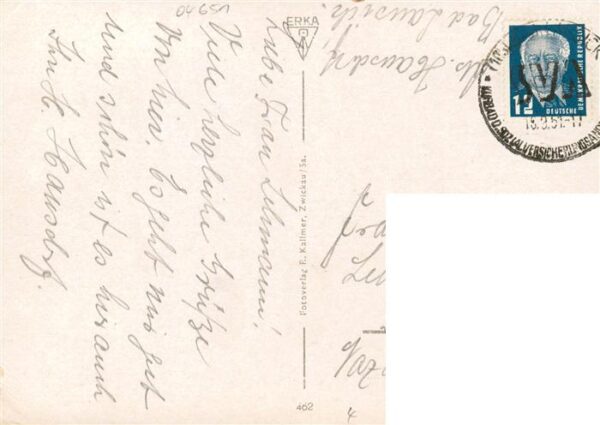 04651
Liebe Frau Lehmann!
Viele herzliche Grüße
von hier. Es geht mir gut
und schön ist es hier auch
Ihr H. Hausdorf.
ERKA
Fotoverlag R. Kallmer, Zwickau/Sa.
462
4
Abs. Hausdorf
Bad Lausick
12
DEUTSCHE
DEMOKRATISCHE REPUBLIK
SVA
SOZIALVERSICHERUNGSANST